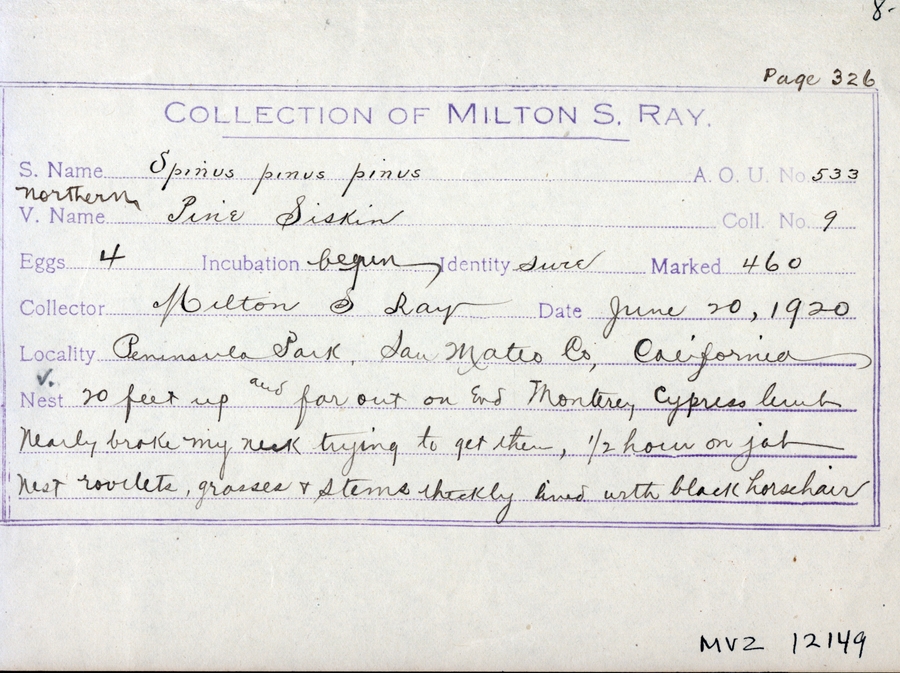 8-
Page 326
COLLECTION OF MILTON S. RAY.
S. Name Spinus pinus pinus A. O. U. No. 533
Northern
V. Name Pine Siskin Coll. No. 9
Eggs 4 Incubation begun Identity sure Marked 460
Collector Milton S Ray Date June 20, 1920
Locality Peninsula Park, San Mateo Co, California
v.
Nest 20 feet up and far out on End Monterey Cypress limb
Nearly broke my neck trying to get them, 1/2 hour on job
Nest rootlets, grasses & stems thickly lined with black horsehair
MVZ 12149